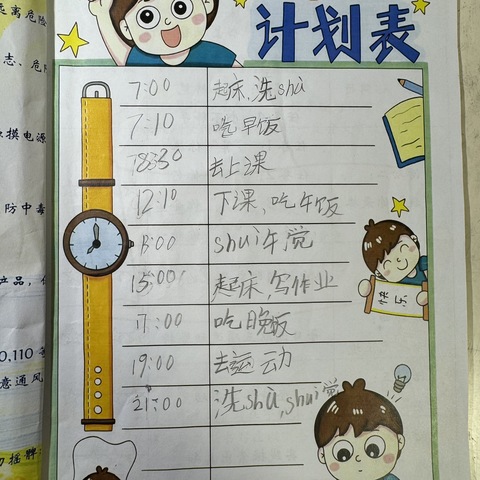 远离危险
志、危险
摸电源
防中毒
产品,
0,110
意通风
勿摇
计划表
7:00 起床,洗shù
7:10 吃早饭
8:30 去上课
12:10 下课,吃午饭
13:00 shuì午觉
15:00 起床,写作业
17:00 吃晚饭
19:00 去运动
21:00 洗shù,shuì觉
快乐